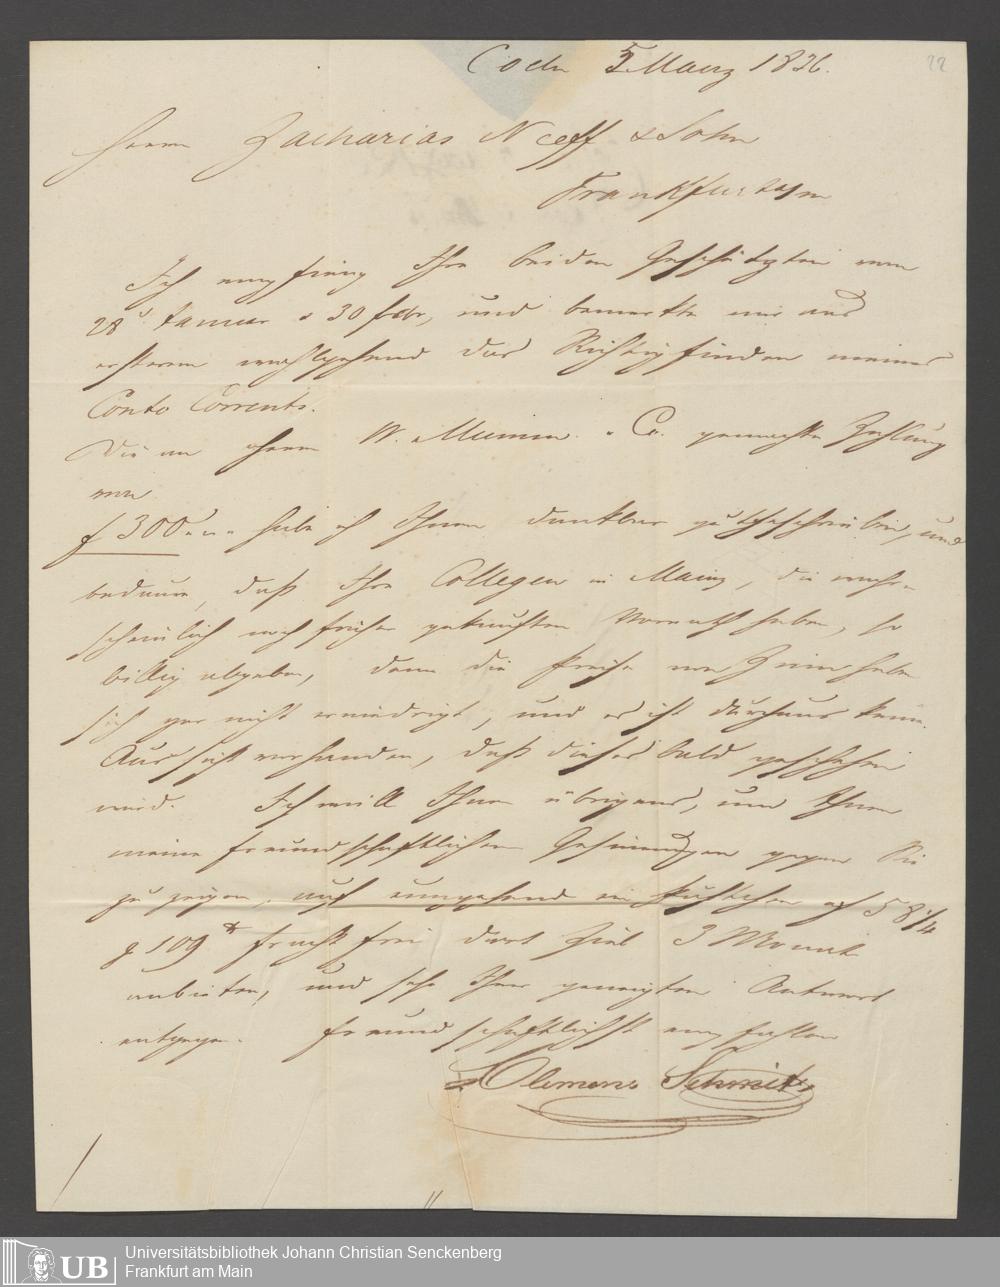 Coeln 5 Maerz 1836.
22
Herrn Zacharias Neeff & Sohn
Frankfurt a/m
Ich empfing Ihre beiden Geschätzten vom
28 Januar & 30 febr, und bemerkte mir aus
ersterem das Richtigfinden meines
Conto Corrents.
Die an Herrn W. Mumm & Co. gemachte Zahlung
von
f 300 „ „ habe ich Ihnen dankbar gutgeschrieben, und
bedaure, daß Ihre Collegen in Mainz, die wahr-
scheinlich noch früher gekauften Vorrath haben, so
billig abgeben, denn die Preise von Zinn haben
sich gar nicht erniedrigt, und es ist durchaus keine
Aussicht vorhanden, daß dieses bald geschehen
wird. Ich will Ihnen übrigens, um Ihnen
meine freundschaftlichen Gesinnungen gegen Sie
zu zeigen, auf umgehend ein 58 1/4
p 109 fracht frei dort Ziel 3 Monat
anbieten, und sehe Ihrer geneigten Antwort
entgegen. Freundschaftlichst empfohlen
Clemens Schmitz
Universitätsbibliothek Johann Christian Senckenberg
Frankfurt am Main
UB